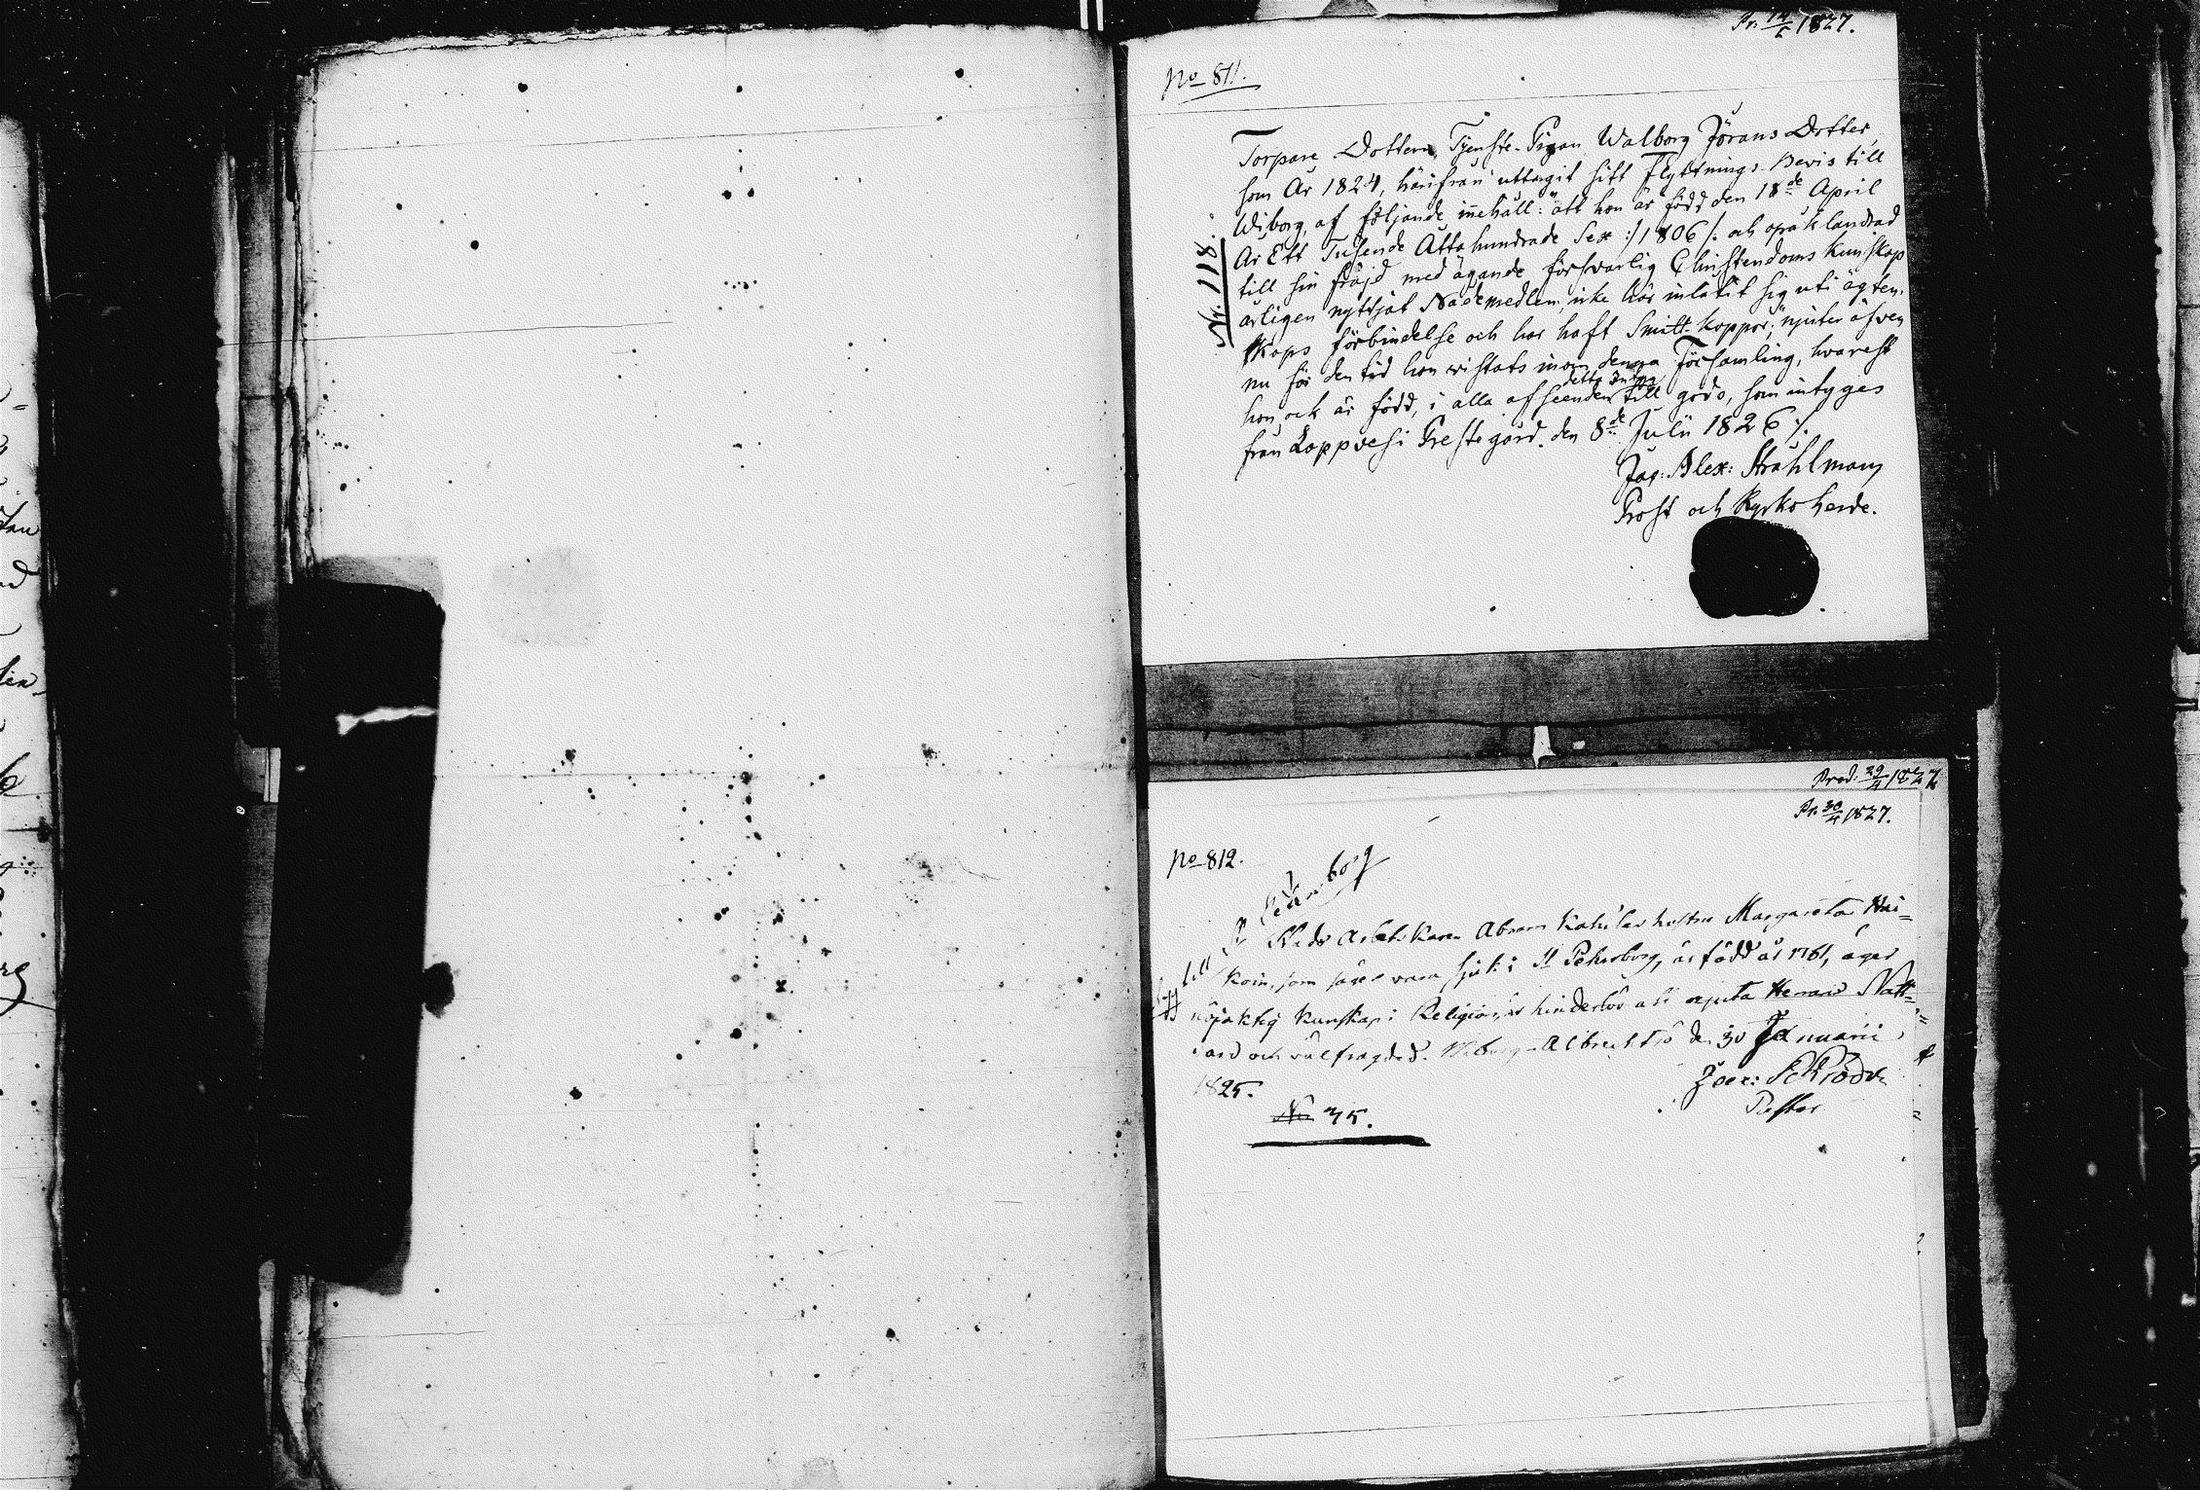 Pr. 14/4 1827.
No 811.
Nr. 118.
Torpare Dottern, Tjenste-Pigan Walborg Jörans Dotter,
som År 1824, härifrån uttagit sitt Flyttnings-Bevis till
Wiborg, af följande inehåll: "att hon är född den 18de April
År Ett Tusende Åtta hundrade Sex :/1806/: och opåklandrad
till sin fräjd med ägande försvarlig Christendoms Kunskap
årligen nyttjat Nådemedlen, icke här inlåtit sig uti ägten-
skaps förbindelse och har haft Smitt-koppor;" njuter äfven
nu för den tid hon vistats inom denna Församling, hvarest
hon ock är född, i alla afseenden detta till godo, som intyges
från Loppvesi Prestegård. den 8de Julii 1826 /.
Jac: Alex: Strahlman
Prost och Kyrko herde.
Prod: 29/4 1827
Pr. 30/4 1827.
No 812.
till St Petersborg
Arbets Karen Abram hustru Margareta Hai=
koin, som säges vara sjuk i St Petersborg, är född år 1761, äger
nöjaktig kunskap i Religion, är hinderlös att njuta Herrans Natt=
vard och välfrägdad. Wiborg den 30 Januarii
1825.
Schröder
Pastor
No 35.